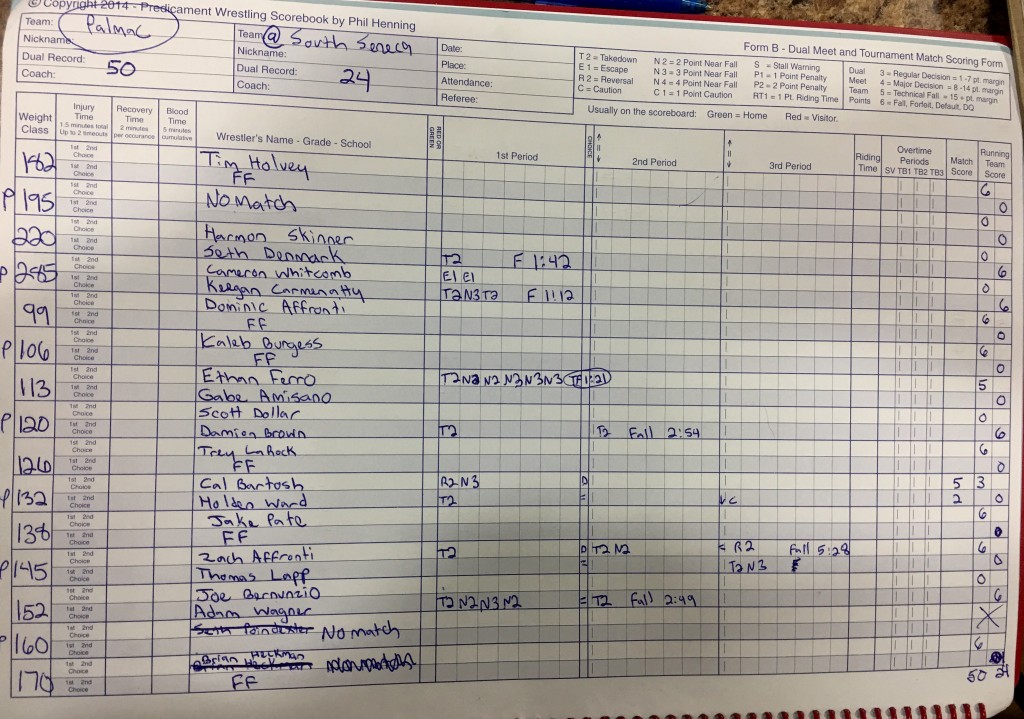 © Copyright 2014 - Predicament Wrestling Scorebook by Phil Henning
Form B - Dual Meet and Tournament Match Scoring Form
Team: Palmac
Nickname:
Dual Record: 50
Coach:
Team: @ South Seneca
Nickname:
Dual Record: 24
Coach:
Date:
Place:
Attendance:
Referee:
T 2 = Takedown N 2 = 2 Point Near Fall S = Stall Warning
E 1 = Escape N 3 = 3 Point Near Fall P1 = 1 Point Penalty
R 2 = Reversal N 4 = 4 Point Near Fall P2 = 2 Point Penalty
C = Caution C 1 = 1 Point Caution RT1 = 1 Pt. Riding Time
Dual Meet Team Points
3 = Regular Decision = 1 -7 pt. margin
4 = Major Decision = 8 -14 pt. margin
5 = Technical Fall = 15 + pt. margin
6 = Fall, Forfeit, Default, DQ
Usually on the scoreboard: Green = Home Red = Visitor.
Weight Class
Injury Time 1.5 minutes total Up to 2 timeouts
Recovery Time 2 minutes per occurance
Blood Time 5 minutes cumulative
Wrestler's Name - Grade - School
RED OR GREEN
1st Period
CHOICE
2nd Period
3rd Period
Riding Time
Overtime Periods SV TB1 TB2 TB3
Match Score
Running Team Score
182 1st 2nd Choice Tim Holvey 6
1st 2nd Choice FF 0
P 195 1st 2nd Choice No Match 0
1st 2nd Choice 0
220 1st 2nd Choice Harmon Skinner 0
1st 2nd Choice Seth Denmark T2 F 1:42 6
P 285 1st 2nd Choice Cameron Whitcomb E1 E1 0
1st 2nd Choice Keegan Carmenatty T2 N3 T2 F 1:12 6
99 1st 2nd Choice Dominic Affronti 6
1st 2nd Choice FF 0
P 106 1st 2nd Choice Kaleb Burgess 6
1st 2nd Choice FF 0
113 1st 2nd Choice Ethan Ferro T2 N3 N2 N3 N3 N3 TF 1:21 5
1st 2nd Choice Gabe Amisano 0
P 120 1st 2nd Choice Scott Dollar 0
1st 2nd Choice Damion Brown T2 T2 Fall 2:54 6
126 1st 2nd Choice Trey LaRock 6
1st 2nd Choice FF 0
P 132 1st 2nd Choice Cal Bartosh R2 N3 D 5 3
1st 2nd Choice Holden Ward T2 = ↓ C 2 0
138 1st 2nd Choice Jake Pate 6
1st 2nd Choice FF 0
P 145 1st 2nd Choice Zach Affronti T2 D T2 N2 < R2 Fall 5:28 6
1st 2nd Choice Thomas Lapp = T2 N3 0
152 1st 2nd Choice Joe Bernunzio 0
1st 2nd Choice Adam Wagner T2 N2 N3 N2 = T2 Fall 2:49 6
P 160 1st 2nd Choice Seth Poindexter No match X
1st 2nd Choice
170 1st 2nd Choice Brian Heckman 6
1st 2nd Choice FF
50 24